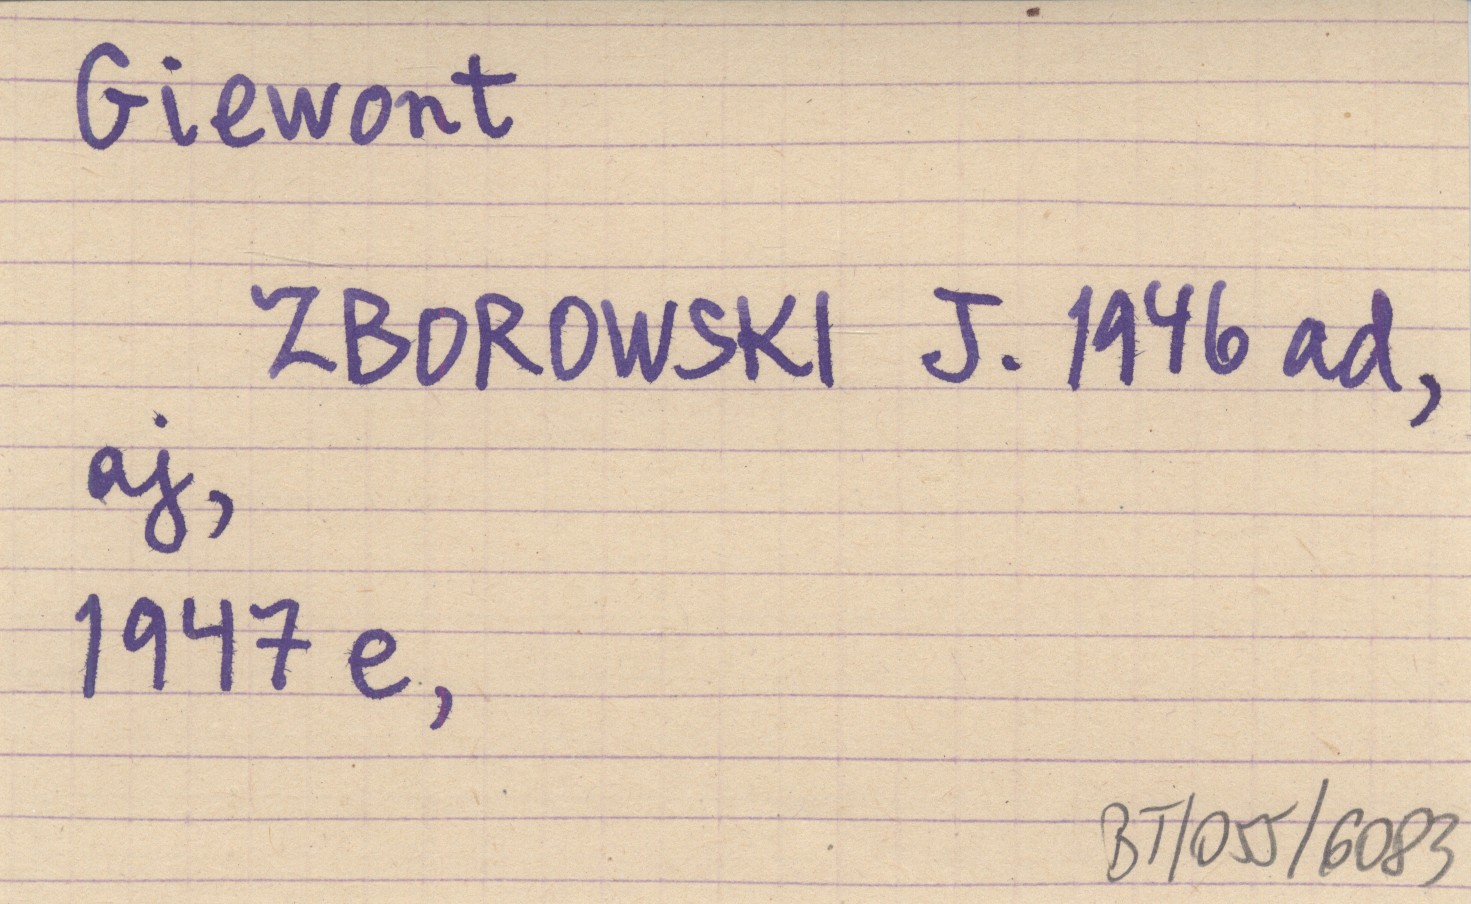 Giewont
ZBOROWSKI J. 1946 ad,
aj,
1947 e,
BT/055/6083